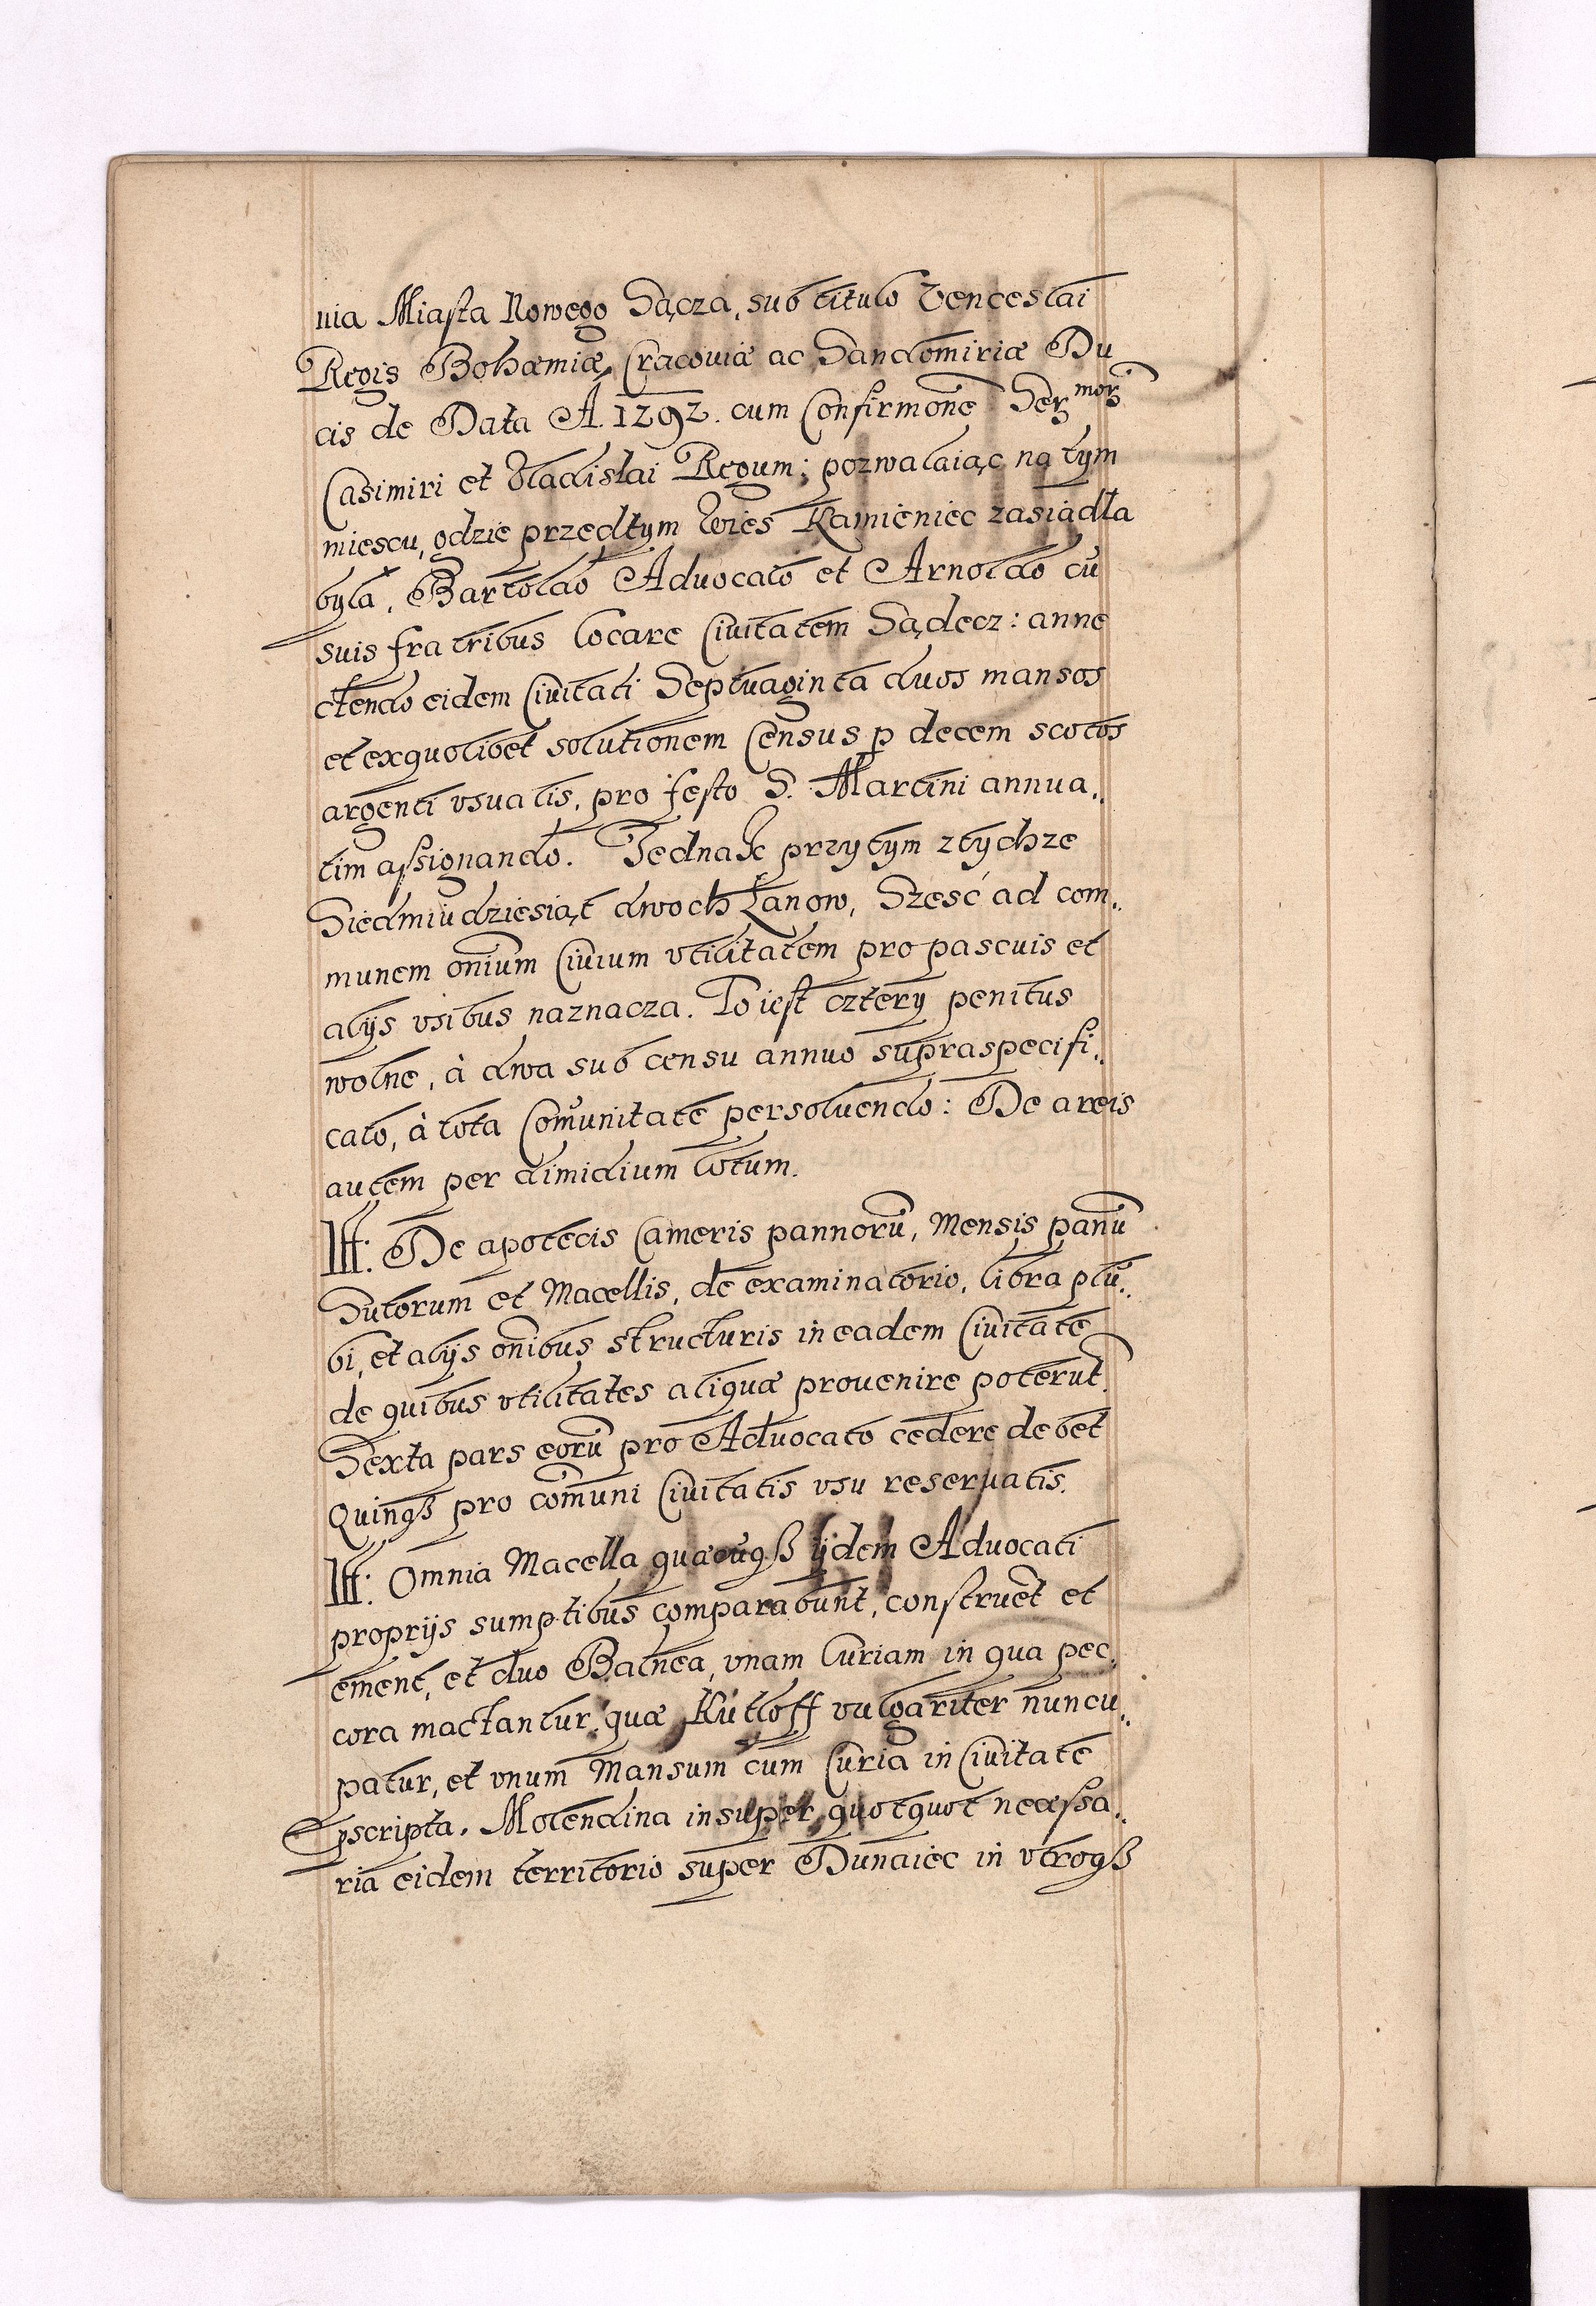 nia Miasta Nowego Sącza, sub titulo Venceslai
Regis Bohæmiæ, Cracouiæ ac Sandomiriæ Du
cis de Data A. 1292. cum Confirmone Sermor
Casimiri et Vladislai Regum; pozwalaiąc na tym
miescu, gdzie przedtym Wies Kamieniec zasiadła
była, Bartoldo Aduocato et Arnoldo cū
suis fratribus locare Ciuitatem Sądecz: anne
ctendo eidem Ciuitati Septuaginta duos mansos
et exquolibet solutionem Census p decem scotos
argenti vsualis, pro festo S. Martini annua..
tim assignando. Jednak przytym ztychze
Siedmiudziesiąt dwoch Łanow, Szesć ad com..
munem oniūm Ciuium vtilitatem pro pascuis et
alijs vsibus naznacza. To iest cztery penitus
wolne, à dwa sub censu annuo supraspecifi..
cato, à tota Com̄unitate persoluendo: De areis
autem per dimidium lotum.
Itt: De apotecis Cameris pannorū, Mensis panū
Sutorum et Macellis, de examinatorio, libra plū..
bi, et alijs onībus structuris in eadem Ciuitate
de quibus vtilitates aliquæ prouenire poterūt
Sexta pars eorū pro Aduocato cedere debet
Quinqß pro com̄uni Ciuitatis vsu reseruatis.
Itt: Omnia Macella quæcūqß ijdem Aduocati
proprijs sumptibus comparabunt, construēt et
ement, et duo Balnea, vnam Curiam in qua pec,
cora mactantur, quæ Kutloff vulgariter nuncu..
patur, et vnum Mansum cum Curia in Ciuitate
pscripta. Molendina insuper, quotquot necessa..
ria eidem territorio super Dunaiec in vtroqß